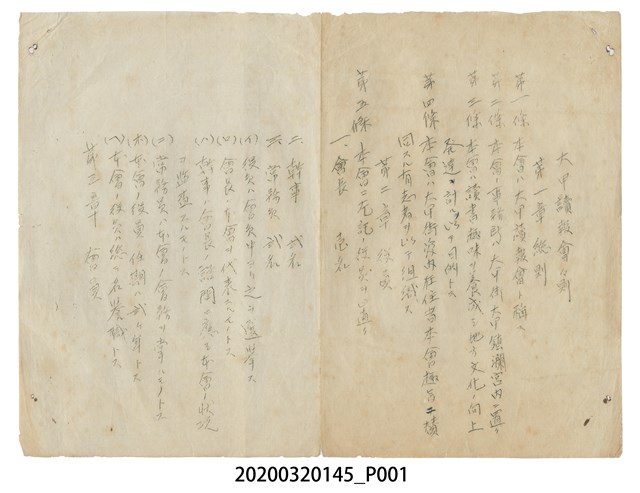 大甲讀報會會則
第一章 總則
第一條 本會ハ大甲讀報會ト稱ス
第二條 本會ノ事務所ハ大甲街大甲鎮瀾宮内ニ置ク
第三條 本會ハ讀書趣味ヲ養成シ地方文化ノ向上
發達ヲ計ルヲ以テ目的トス
第四條 本會ハ大甲街及外住住者本會趣旨ニ贊
同スル有志者ヲ以テ組織ス
第二章 役員
第五條 本會ニ左記ノ役員ヲ置ク
一、會長 壱名
二、幹事 弐名
三、常務員 弐名
(イ)役員ハ會員中ヨリ之ヲ選擧ス
(ロ)會長ハ本會ヲ代表スルモノトス
(ハ)幹事ハ會長ノ諮問ニ應ジ本會ノ狀況
ヲ監査スルモノトス
(ニ)常務員ハ本會ノ會務ヲ掌ルモノトス
(ホ)本會ノ役員ノ任期ハ弐ケ年トス
(ヘ)本會ノ役員ハ總テ名譽職トス
第三章 會員
20200320145_P001